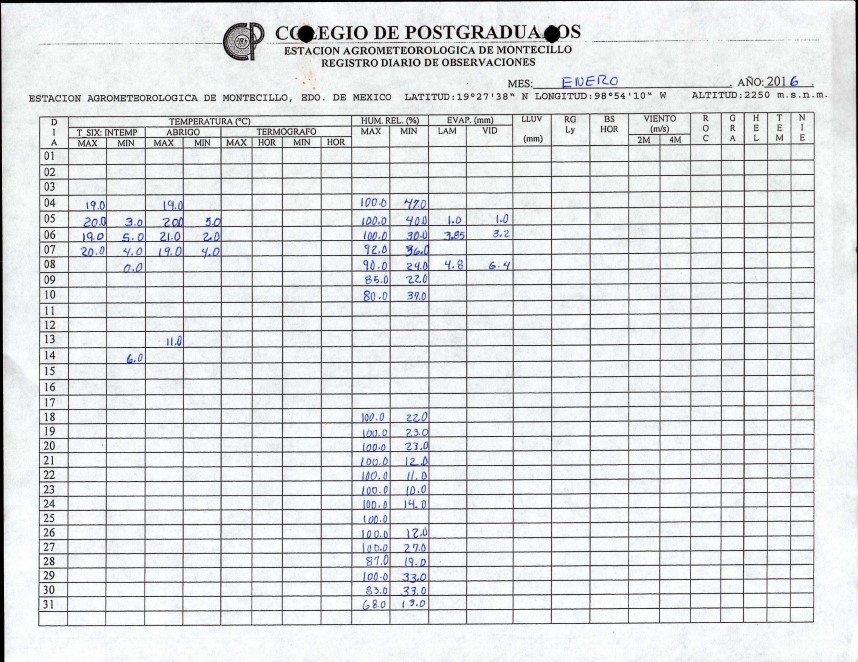 COLEGIO DE POSTGRADUADOS
ESTACION AGROMETEOROLOGICA DE MONTECILLO
REGISTRO DIARIO DE OBSERVACIONES
MES: ENERO AÑO: 2016
ESTACION AGROMETEOROLOGICA DE MONTECILLO, EDO. DE MEXICO LATITUD:19°27'38" N LONGITUD:98°54'10" W ALTITUD:2250 m.s.n.m.
DIA TEMPERATURA (°C) HUM. REL. (%) EVAP. (mm) LLUV (mm) RG Ly BS HOR VIENTO (m/s) ROC GRA HEL TEM NIE
T SIX: INTEMP ABRIGO TERMOGRAFO MAX MIN LAM VID
MAX MIN MAX MIN MAX HOR MIN HOR 2M 4M
01
02
03
04 19.0 19.0 100.0 47.0
05 20.0 3.0 20.0 5.0 100.0 40.0 1.0 1.0
06 19.0 5.0 21.0 2.0 100.0 30.0 3.85 3.2
07 20.0 4.0 19.0 4.0 92.0 36.0
08 0.0 90.0 24.0 4.8 6.4
09 85.0 22.0
10 80.0 39.0
11
12
13 11.0
14 6.0
15
16
17
18 100.0 22.0
19 100.0 23.0
20 100.0 23.0
21 100.0 12.0
22 100.0 11.0
23 100.0 10.0
24 100.0 14.0
25 100.0
26 100.0 12.0
27 100.0 27.0
28 87.0 19.0
29 100.0 33.0
30 83.0 33.0
31 68.0 19.0